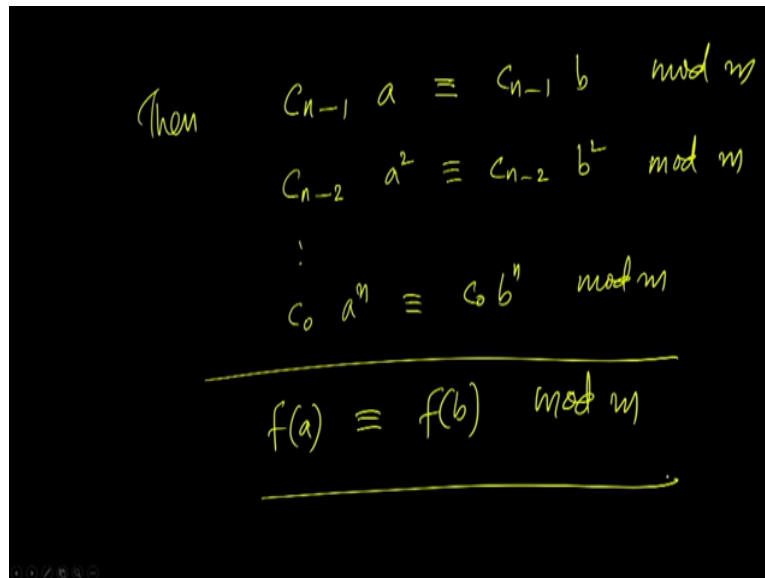 Then C_{n-1} a ≡ C_{n-1} b mod m
C_{n-2} a² ≡ C_{n-2} b² mod m
⋮
C_0 aⁿ ≡ C_0 bⁿ mod m
f(a) ≡ f(b) mod m